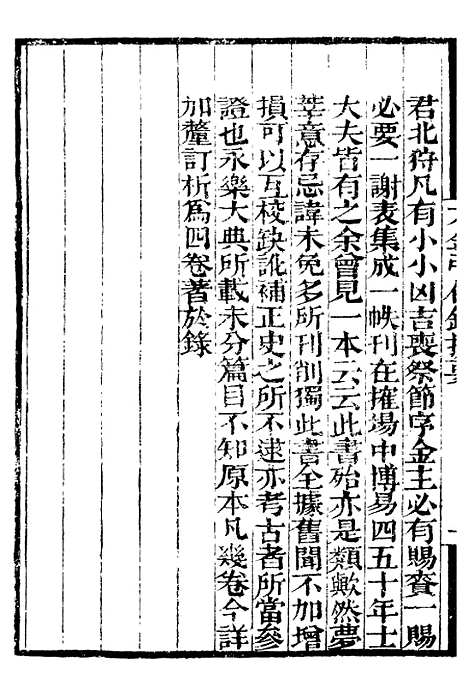 大金弔伐錄提要
君北狩凡有小小凶吉喪祭節序金主必有賜賚一賜
必要一謝表集成一帙刊在搉場中博易四五十年士
大夫皆有之余曾見一本云云此書殆亦是類歟然夢
莘意存忌諱未免多所刊削獨此書全據舊聞不加增
損可以互校缺訛補正史之所不逮亦考古者所當參
證也永樂大典所載未分篇目不知原本凡幾卷今詳
加釐訂析爲四卷著於錄